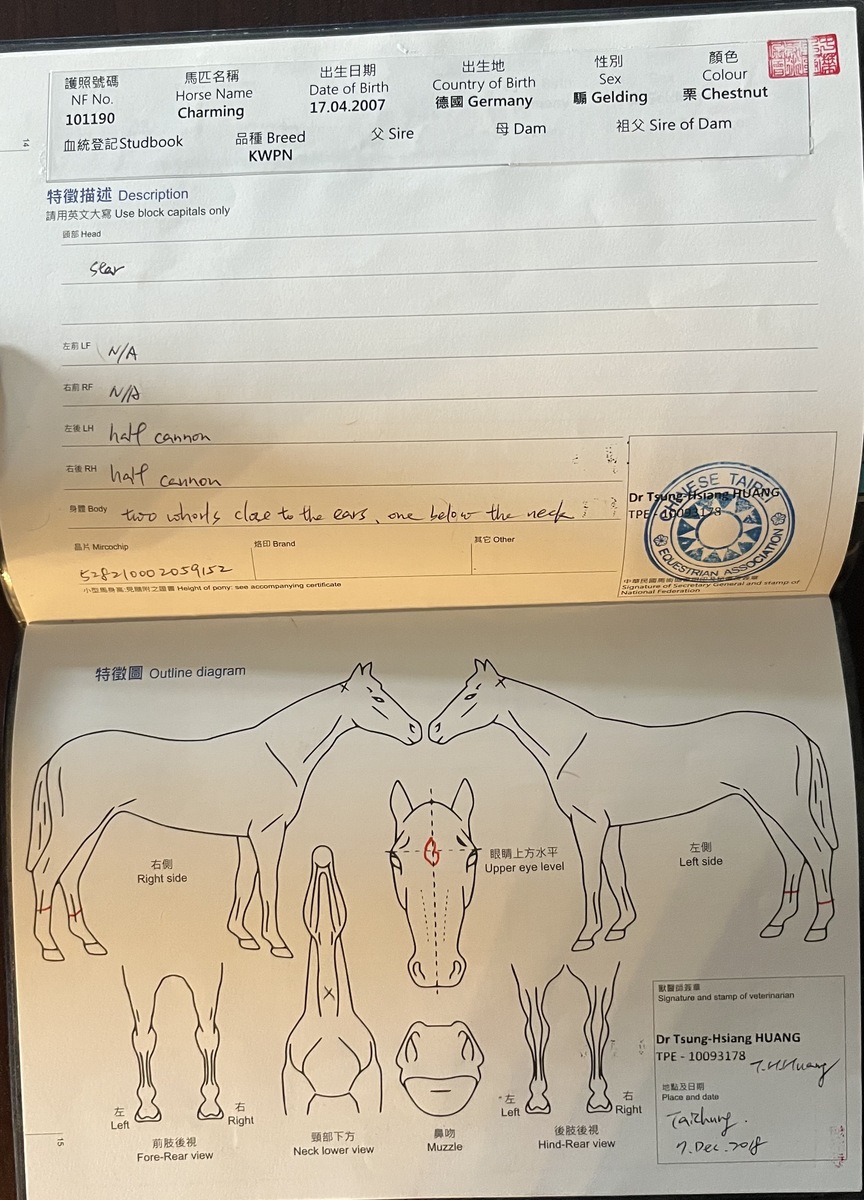 護照號碼 馬匹名稱 出生日期 出生地 性別 顏色
NF No. Horse Name Date of Birth Country of Birth Sex Colour
101190 Charming 17.04.2007 德國 Germany 騸 Gelding 栗 Chestnut
血統登記 Studbook 品種 Breed 父 Sire 母 Dam 祖父 Sire of Dam
KWPN
14
特徵描述 Description
請用英文大寫 Use block capitals only
頭部 Head
star
左前 LF N/A
右前 RF N/A
左後 LH half cannon
右後 RH half cannon
身體 Body two whorls close to the ears, one below the neck
晶片 Mircochip 烙印 Brand 其它 Other
528210002059152
小型馬身高:見隨附之證書 Height of pony: see accompanying certificate
Dr Tsung-Hsiang HUANG
TPE - 10093178
CHINESE TAIPEI
EQUESTRIAN ASSOCIATION
Signature of Secretary General and stamp of
National Federation
特徵圖 Outline diagram
右側
Right side
眼睛上方水平
Upper eye level
左側
Left side
左
Left
右
Right
前肢後視
Fore-Rear view
頸部下方
Neck lower view
鼻吻
Muzzle
左
Left
右
Right
後肢後視
Hind-Rear view
獸醫師簽章
Signature and stamp of veterinarian
Dr Tsung-Hsiang HUANG
TPE - 10093178
T.H Huang
地點及日期
Place and date
Taichung.
7.Dec.2018
15